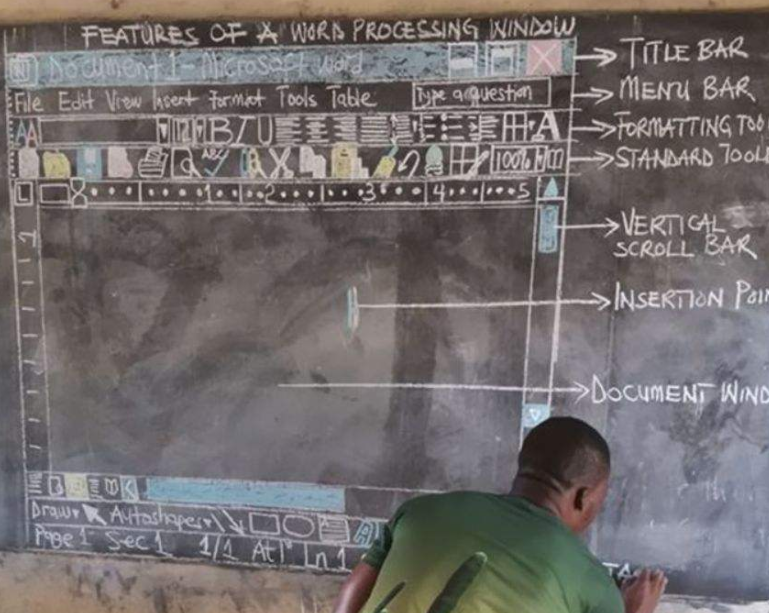 FEATURES OF A WORD PROCESSING WINDOW
Document 1 - Microsoft Word
TITLE BAR
File Edit View Insert Format Tools Table
Type a question
MENU BAR
AA
B I U
A
FORMATTING TOO
ABC
100%
STANDARD TOOL
L
1 2 3 4 5
VERTICAL
SCROLL BAR
INSERTION POIN
DOCUMENT WIND
Draw Autoshapes
A
Page 1 Sec 1 1/1 At Ln 1
TA